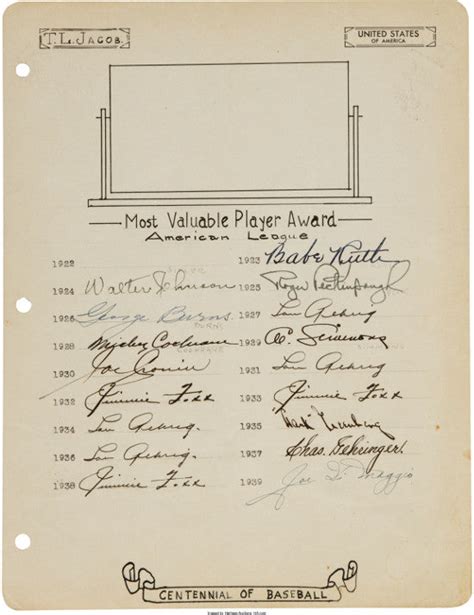 T.L. JACOB.
UNITED STATES
OF AMERICA
Most Valuable Player Award
American League
1922
1923 Babe Ruth
1924 Walter Johnson
1925 Roger Peckinpaugh
1926 George Burns
BURNS
1927 Lou Gehrig
1928 Mickey Cochrane
COCHRANE
1929 Al Simmons
1930 Joe Cronin
1931 Lou Gehrig
1932 Jimmie Foxx
1933 Jimmie Foxx
1934 Lou Gehrig
1935 Hank Greenberg
1936 Lou Gehrig
1937 Chas. Gehringer
1938 Jimmie Foxx
1939 Joe Di Maggio
CENTENNIAL OF BASEBALL